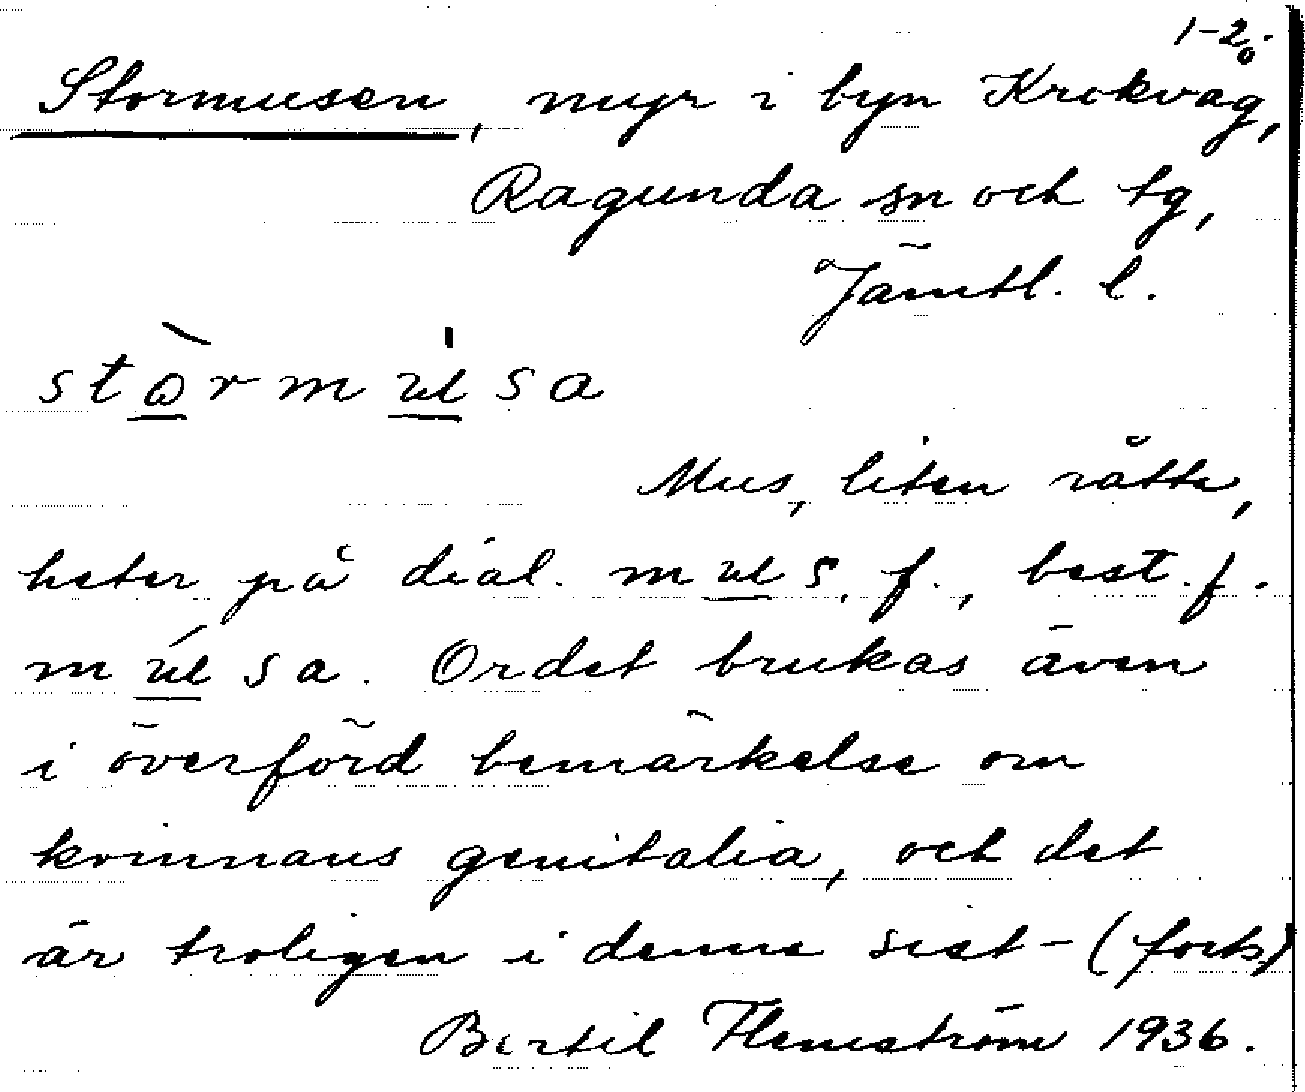 1-2.
Stormusen, myr i byn Krokvåg,
Ragunda sn och tg,
Jämtl. l.
stòrmu̍sa
Mus, liten råtta,
heter på dial. mus, f., best. f.
músa. Ordet brukas även
i överförd bemärkelse om
kvinnans genitalia, och det
är troligen i denna sist- (forts.)
Bertil Flemström 1936.